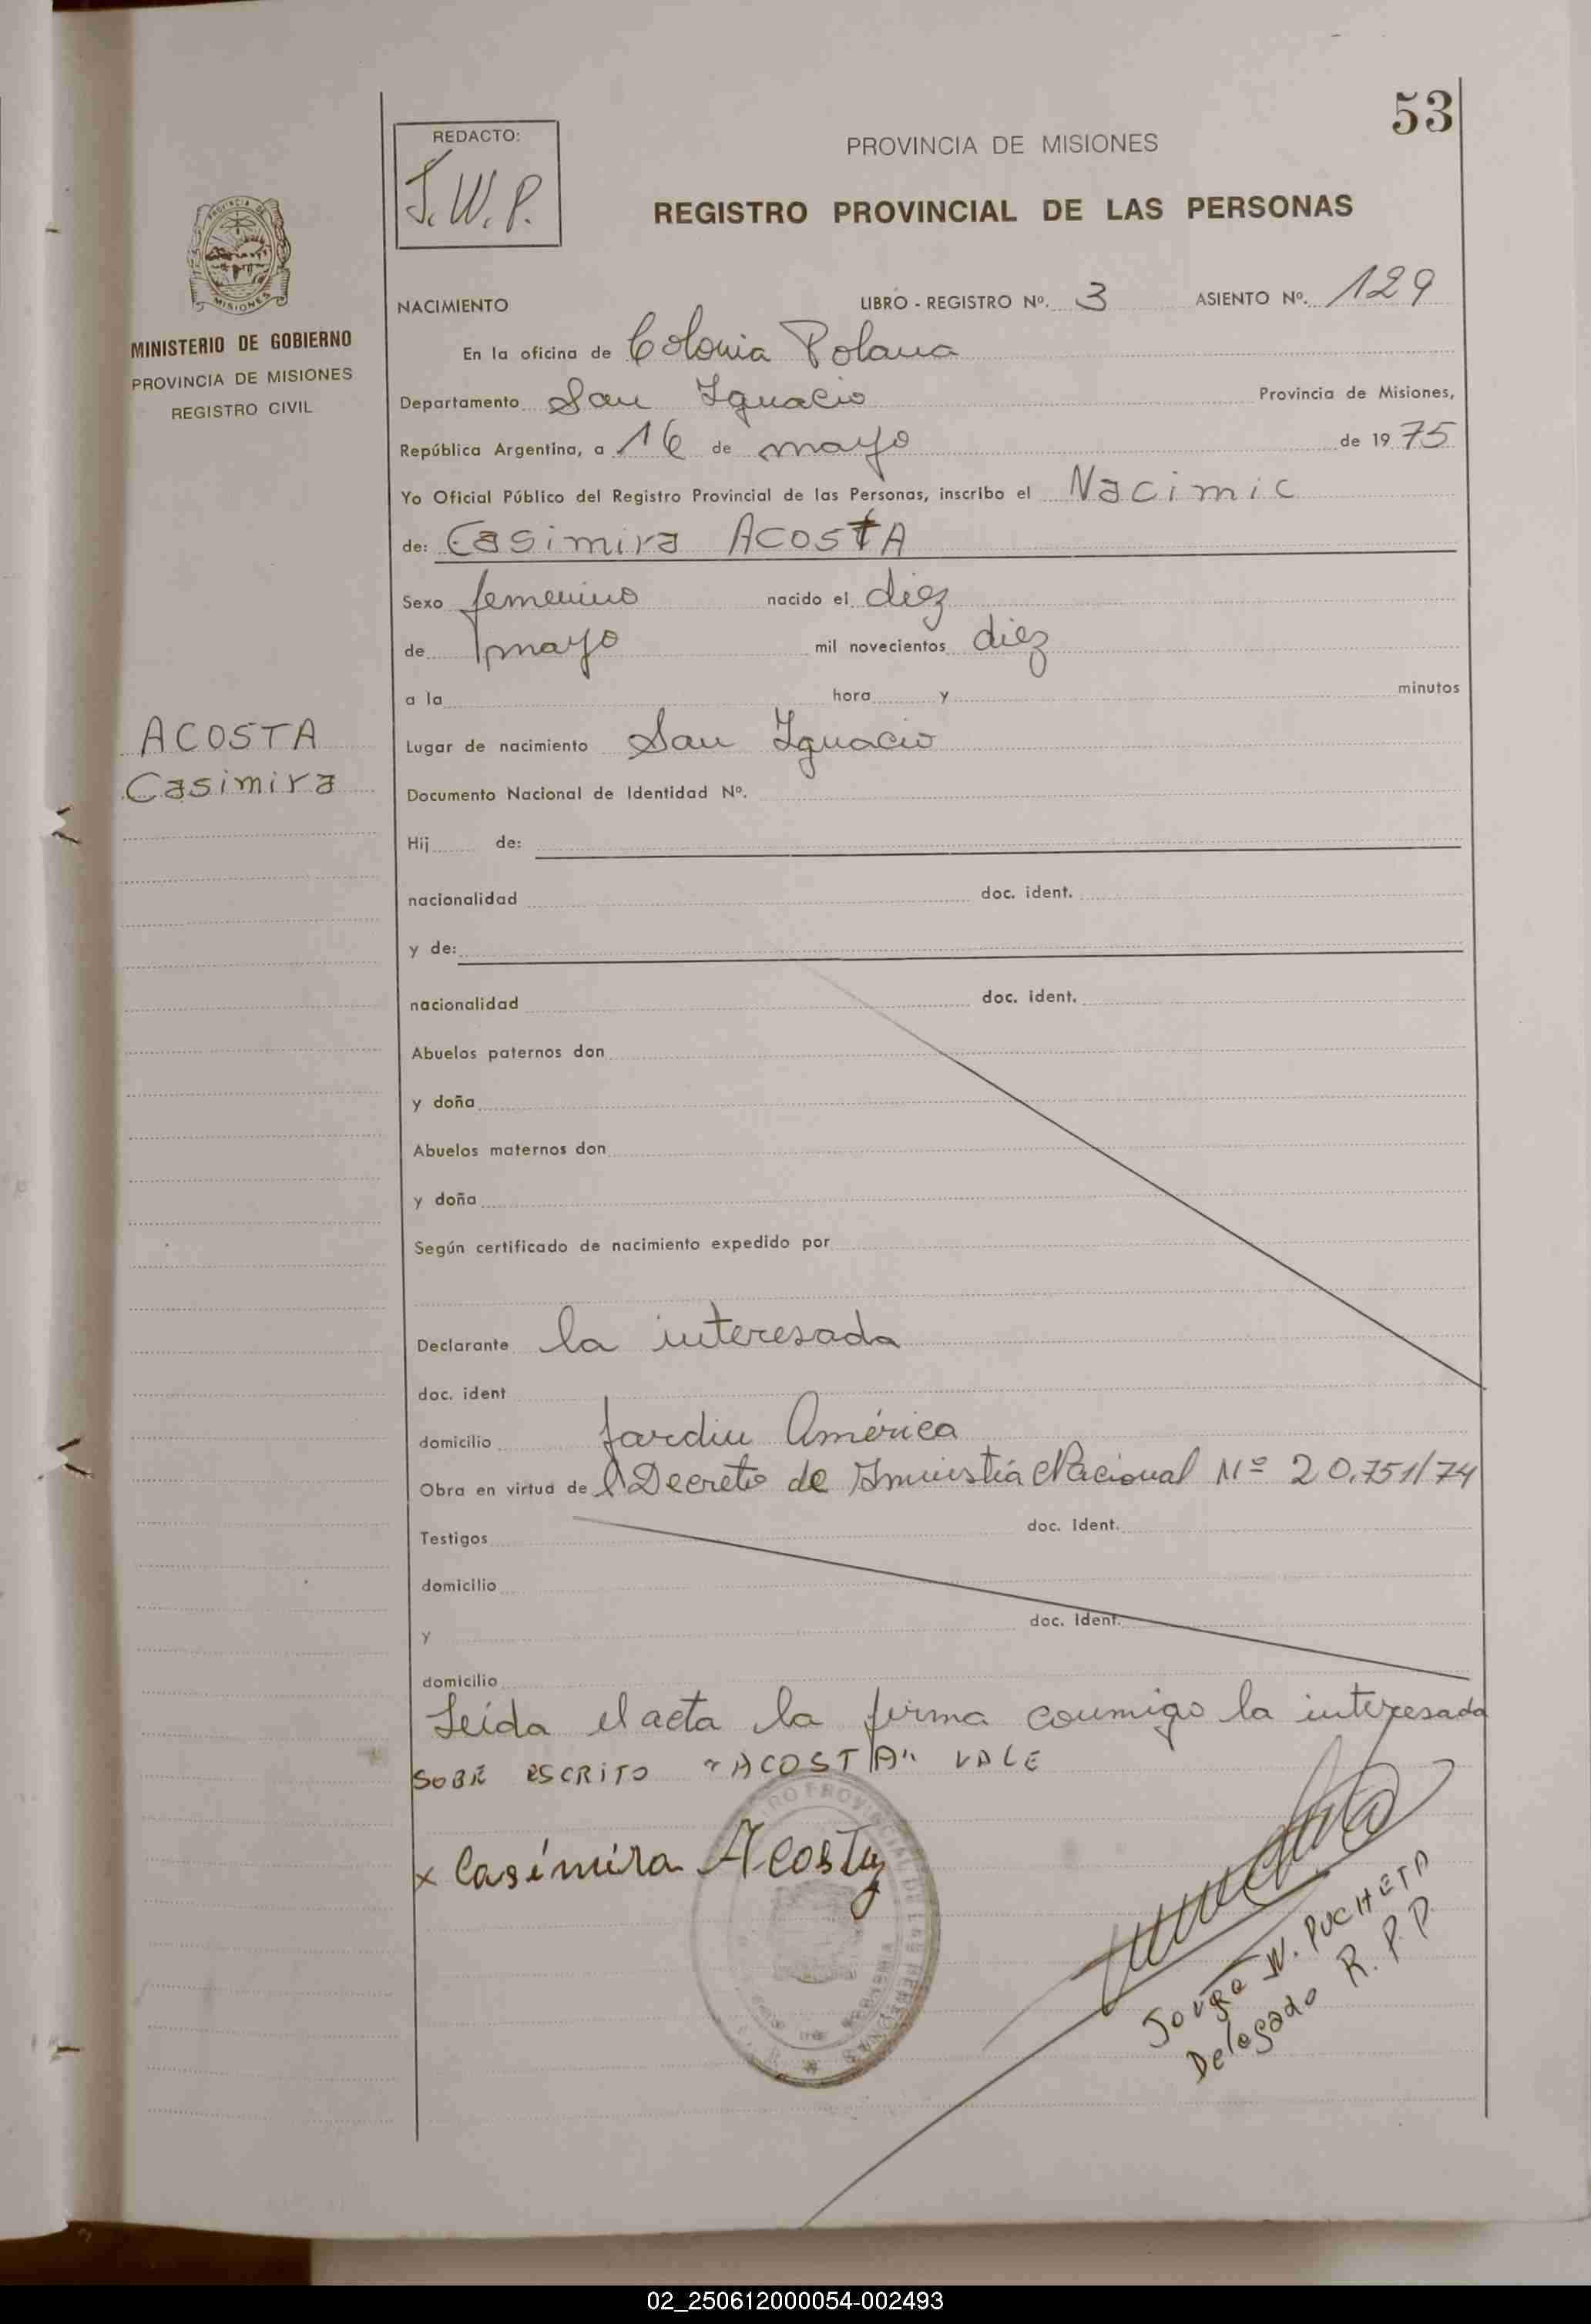 53
REDACTO:
J.W.P.
PROVINCIA DE MISIONES
REGISTRO PROVINCIAL DE LAS PERSONAS
MISIONES
MINISTERIO DE GOBIERNO
PROVINCIA DE MISIONES
REGISTRO CIVIL
NACIMIENTO LIBRO - REGISTRO Nº. 3 ASIENTO Nº. 129
En la oficina de Colonia Polana
Departamento San Ignacio Provincia de Misiones,
República Argentina, a 16 de mayo de 1975
Yo Oficial Público del Registro Provincial de las Personas, inscribo el Nacimic
de: Casimira ACOSTA
Sexo femenino nacido el diez
de mayo mil novecientos diez
a la hora y minutos
ACOSTA
Casimira
Lugar de nacimiento San Ignacio
Documento Nacional de Identidad Nº.
Hij de:
nacionalidad doc. ident.
y de:
nacionalidad doc. ident.
Abuelos paternos don
y doña
Abuelos maternos don
y doña
Según certificado de nacimiento expedido por
Declarante la interesada
doc. ident
domicilio Jardin América
Obra en virtud de Decreto de Amnistía Nacional Nº 20.751/74
Testigos doc. ident.
domicilio
y doc. ident.
domicilio
Leída el acta la firma conmigo la interesada
SOBRE ESCRITO "ACOSTA" VALE
x Casimira Acosta
Jorge W. PUCHETA
Delegado R.P.P.
02_250612000054-002493